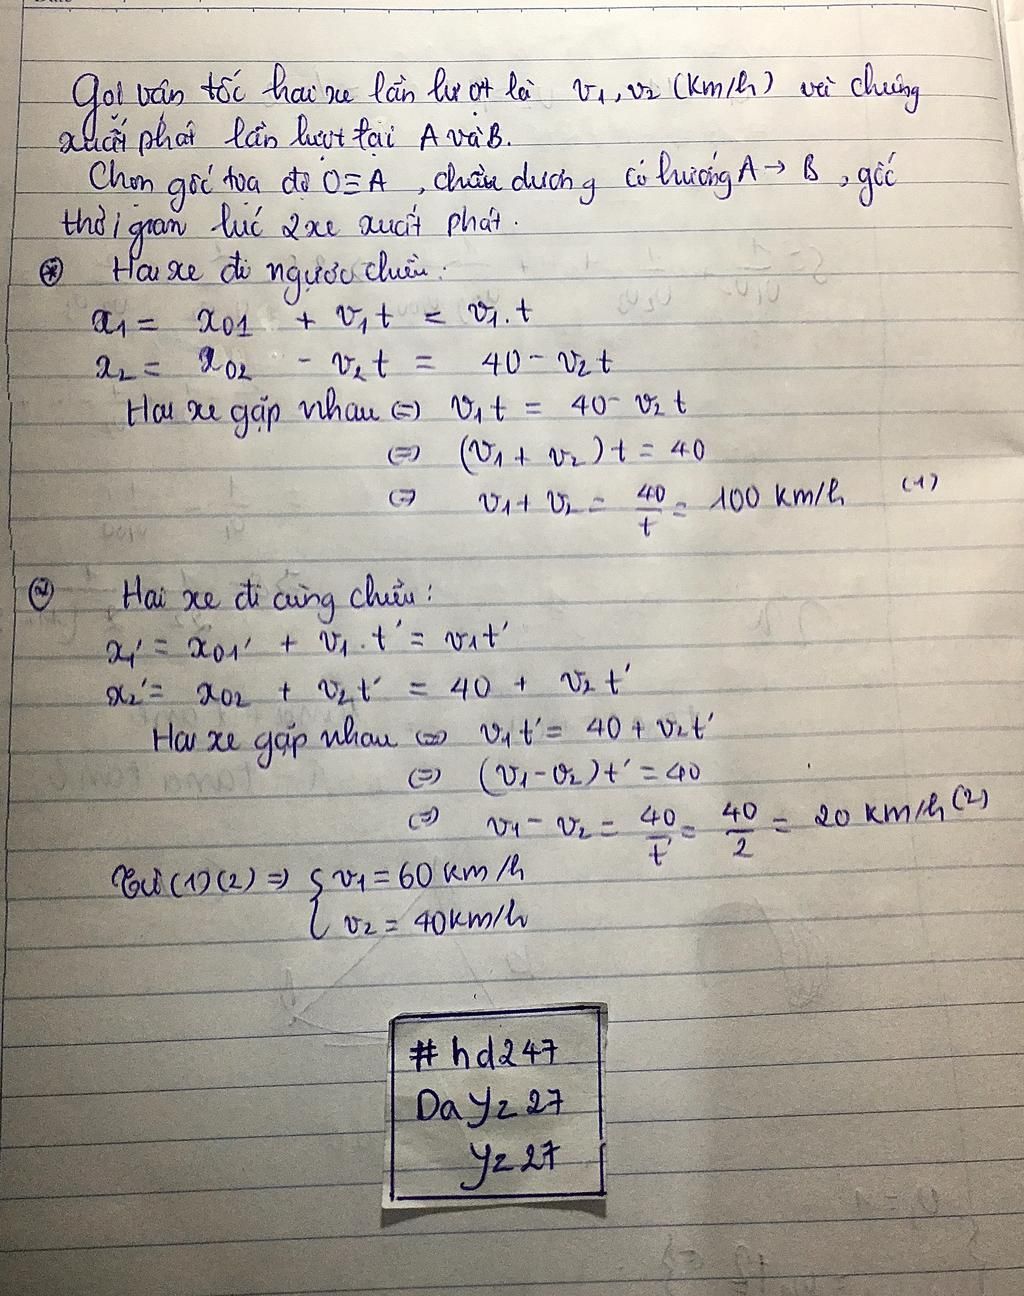 Gọi vận tốc hai xe lần lượt là v₁, v₂ (km/h) với chúng
xuất phát lần lượt tại A và B.
Chọn gốc tọa độ O≡A, chiều dương có hướng A → B, gốc
thời gian lúc 2 xe xuất phát.
⊛ Hai xe đi ngược chiều:
x₁ = x₀₁ + v₁t = v₁.t
x₂ = x₀₂ - v₂t = 40 - v₂t
Hai xe gặp nhau ⇔ v₁t = 40 - v₂t
⇔ (v₁ + v₂)t = 40
⇔ v₁ + v₂ = 40/t = 100 km/h (1)
Hai xe đi cùng chiều:
x₁' = x₀₁' + v₁.t' = v₁t'
x₂' = x₀₂ + v₂t' = 40 + v₂t'
Hai xe gặp nhau ⇔ v₁t' = 40 + v₂t'
⇔ (v₁ - v₂)t' = 40
⇔ v₁ - v₂ = 40/t' = 40/2 = 20 km/h (2)
Từ (1)(2) ⇒ { v₁ = 60 km/h
v₂ = 40 km/h
#hd247
Dayz27
yz27